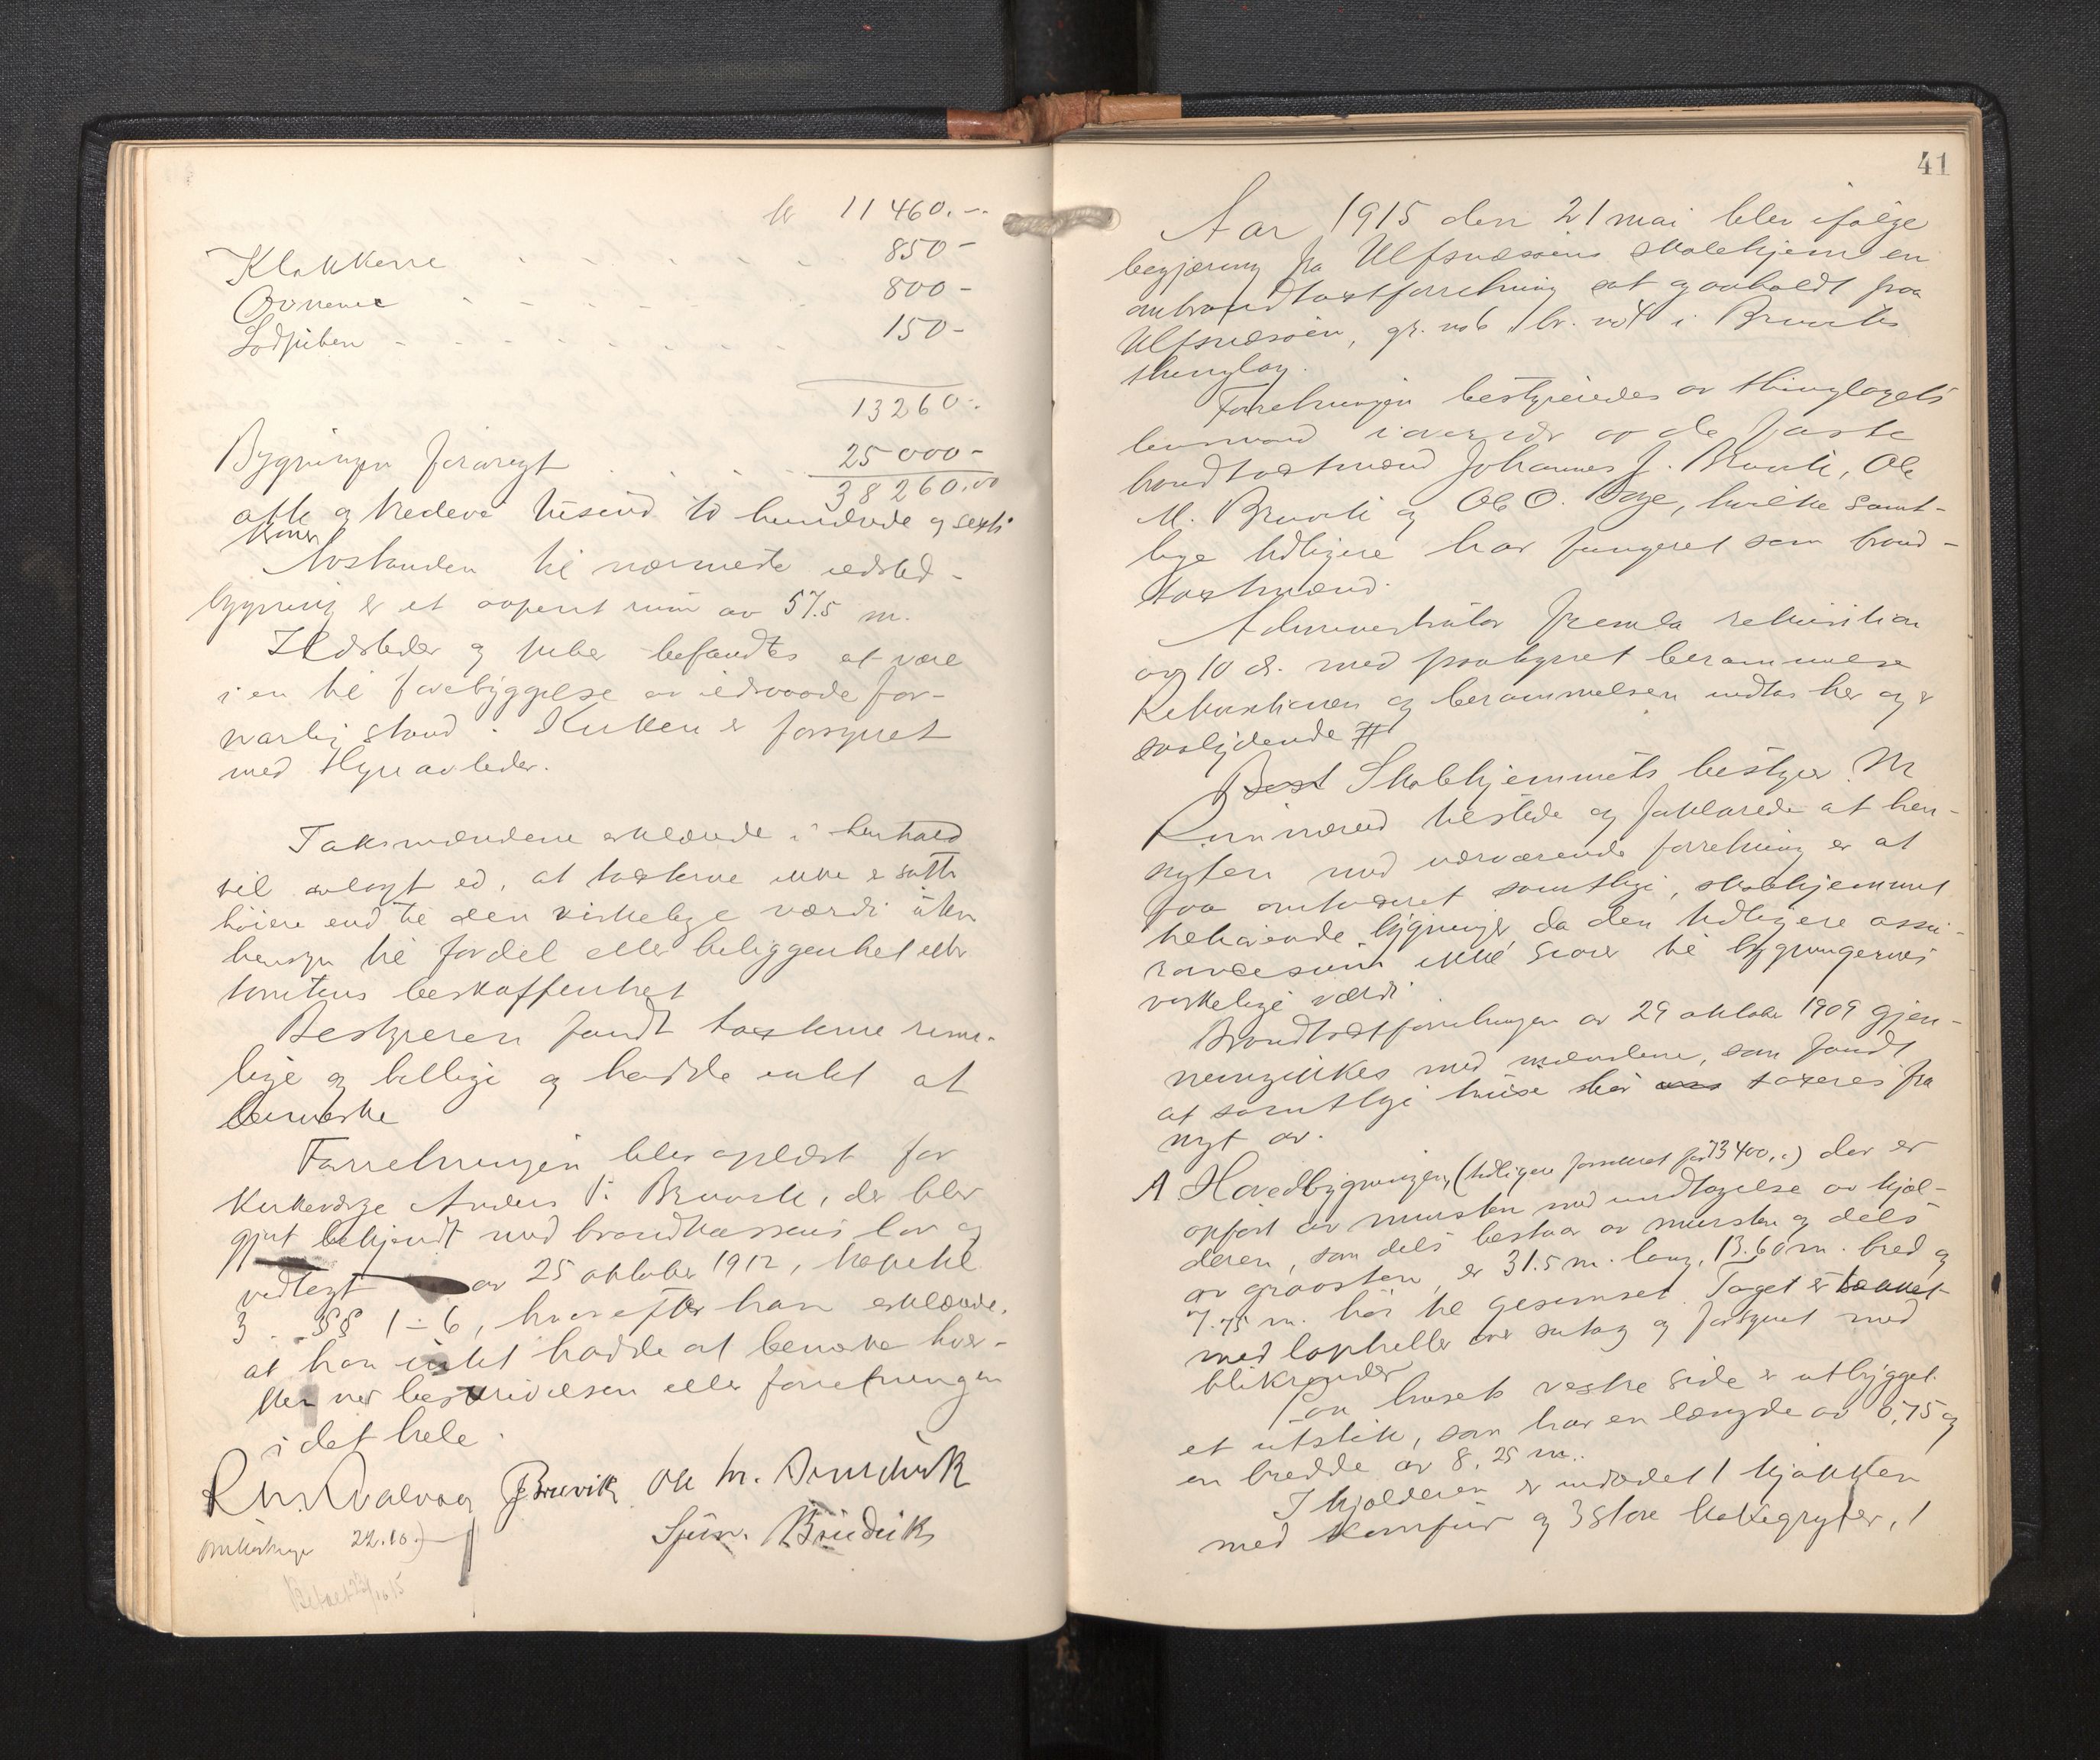 kr 11460.-
Klokkerne 850-
Ovnene 800-
Lodpiben 150-
13260-
Bygningen forøvrigt 25000-
38260.00
otte og tredeve tusend to hundrede og sexti
kroner
Avstanden til nærmeste ildsted-
bygning er et aapent rum av 57.5 m.
Ildsteder og piber befandtes at være
i en til forebyggelse av ildsvaade for-
svarlig stand. Kirken er forsynet
med lynavleder.
Taksmændene erklærede i henhold
til avlagt ed, at taxterne ikke er satte
høiere end til den virkelige værdi uten
hensyn til fordel eller beliggenhet eller
tomtens beskaffenhet
Bestyreren fandt taxterne rime-
lige og billige og hadde intet at
bemerke
Forretningen blev oplæst for
Kirkeværge Anders P. Bruvik, der blev
gjort bekjendt med brandkassens lov og
vedtegt av 25 oktober 1912, kapitel
3. §§ 1-6, hvorefter han erklærede,
at han intet hadde at bemerke hver-
ken ved beskrivelsen eller forretningen
i det hele.
R. Kvalvaag J Bruvik Ole M.
Omkostninger 22.10
Betalt
41
Aar 1915 den 21 mai blev ifølge
begjæring fra Ulfsnesøens skolehjem en
ombrandtaxtforretning sat og avholdt paa
Ulfsnesøen, gr. no 6 br. no 4 i Bruviks
thinglag.
Forretningen bestyrededes av thinglagets
lensmand i overvær av de faste
brandtaxtmænd Johannes J. Bruvik, Ole
M. Bruvik og Ole O. , hvilke samt-
lige tidligere har fungeret som brand-
taxtmænd.
Administrator fremla rekvisition
av 10 ds. med paategnet berammelse
Rekvisitionen og berammelsen indtas her og er
saalydende #
Best Skolehjemmets bestyrer M
tilstede og forklarede at hen-
sigten med nærværende forretning er at
faa omtaxeret samtlige, skolehjemmet
tilhørende bygninger, da den tidligere assu-
rancesum ikke svarer til bygningernes
virkelige værdi
Brandtaxtforretningen av 29 oktober 1909 gjen-
nemgikkes med mændene, som fandt
at samtlige huse bør taxeres fra
nyt av.
A Hovedbygningen, (tidligere forsikret for 73400,-) der er
opført av mursten med undtagelse av kjel-
deren, som dels bestaar av mursten og dels
av graasten, er 31.5 m. lang, 13.60 m. bred og
7.75 m. høi til gesimset. Taget er tækket
med lapheller over sutag og forsynet med
blikrender
Paa husets vestre side er utbygget
et utstik, som har en længde av 0,75 og
en bredde av 8.25 m.
I kjelderen er indredet 1 kjøkken
med komfur og 3 store kokegryter, 1